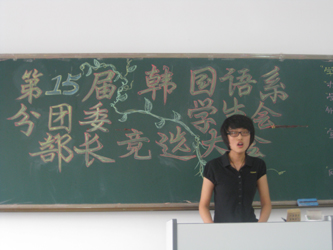 第15届 韩国语系
分团委 学生会
部长竞选大会